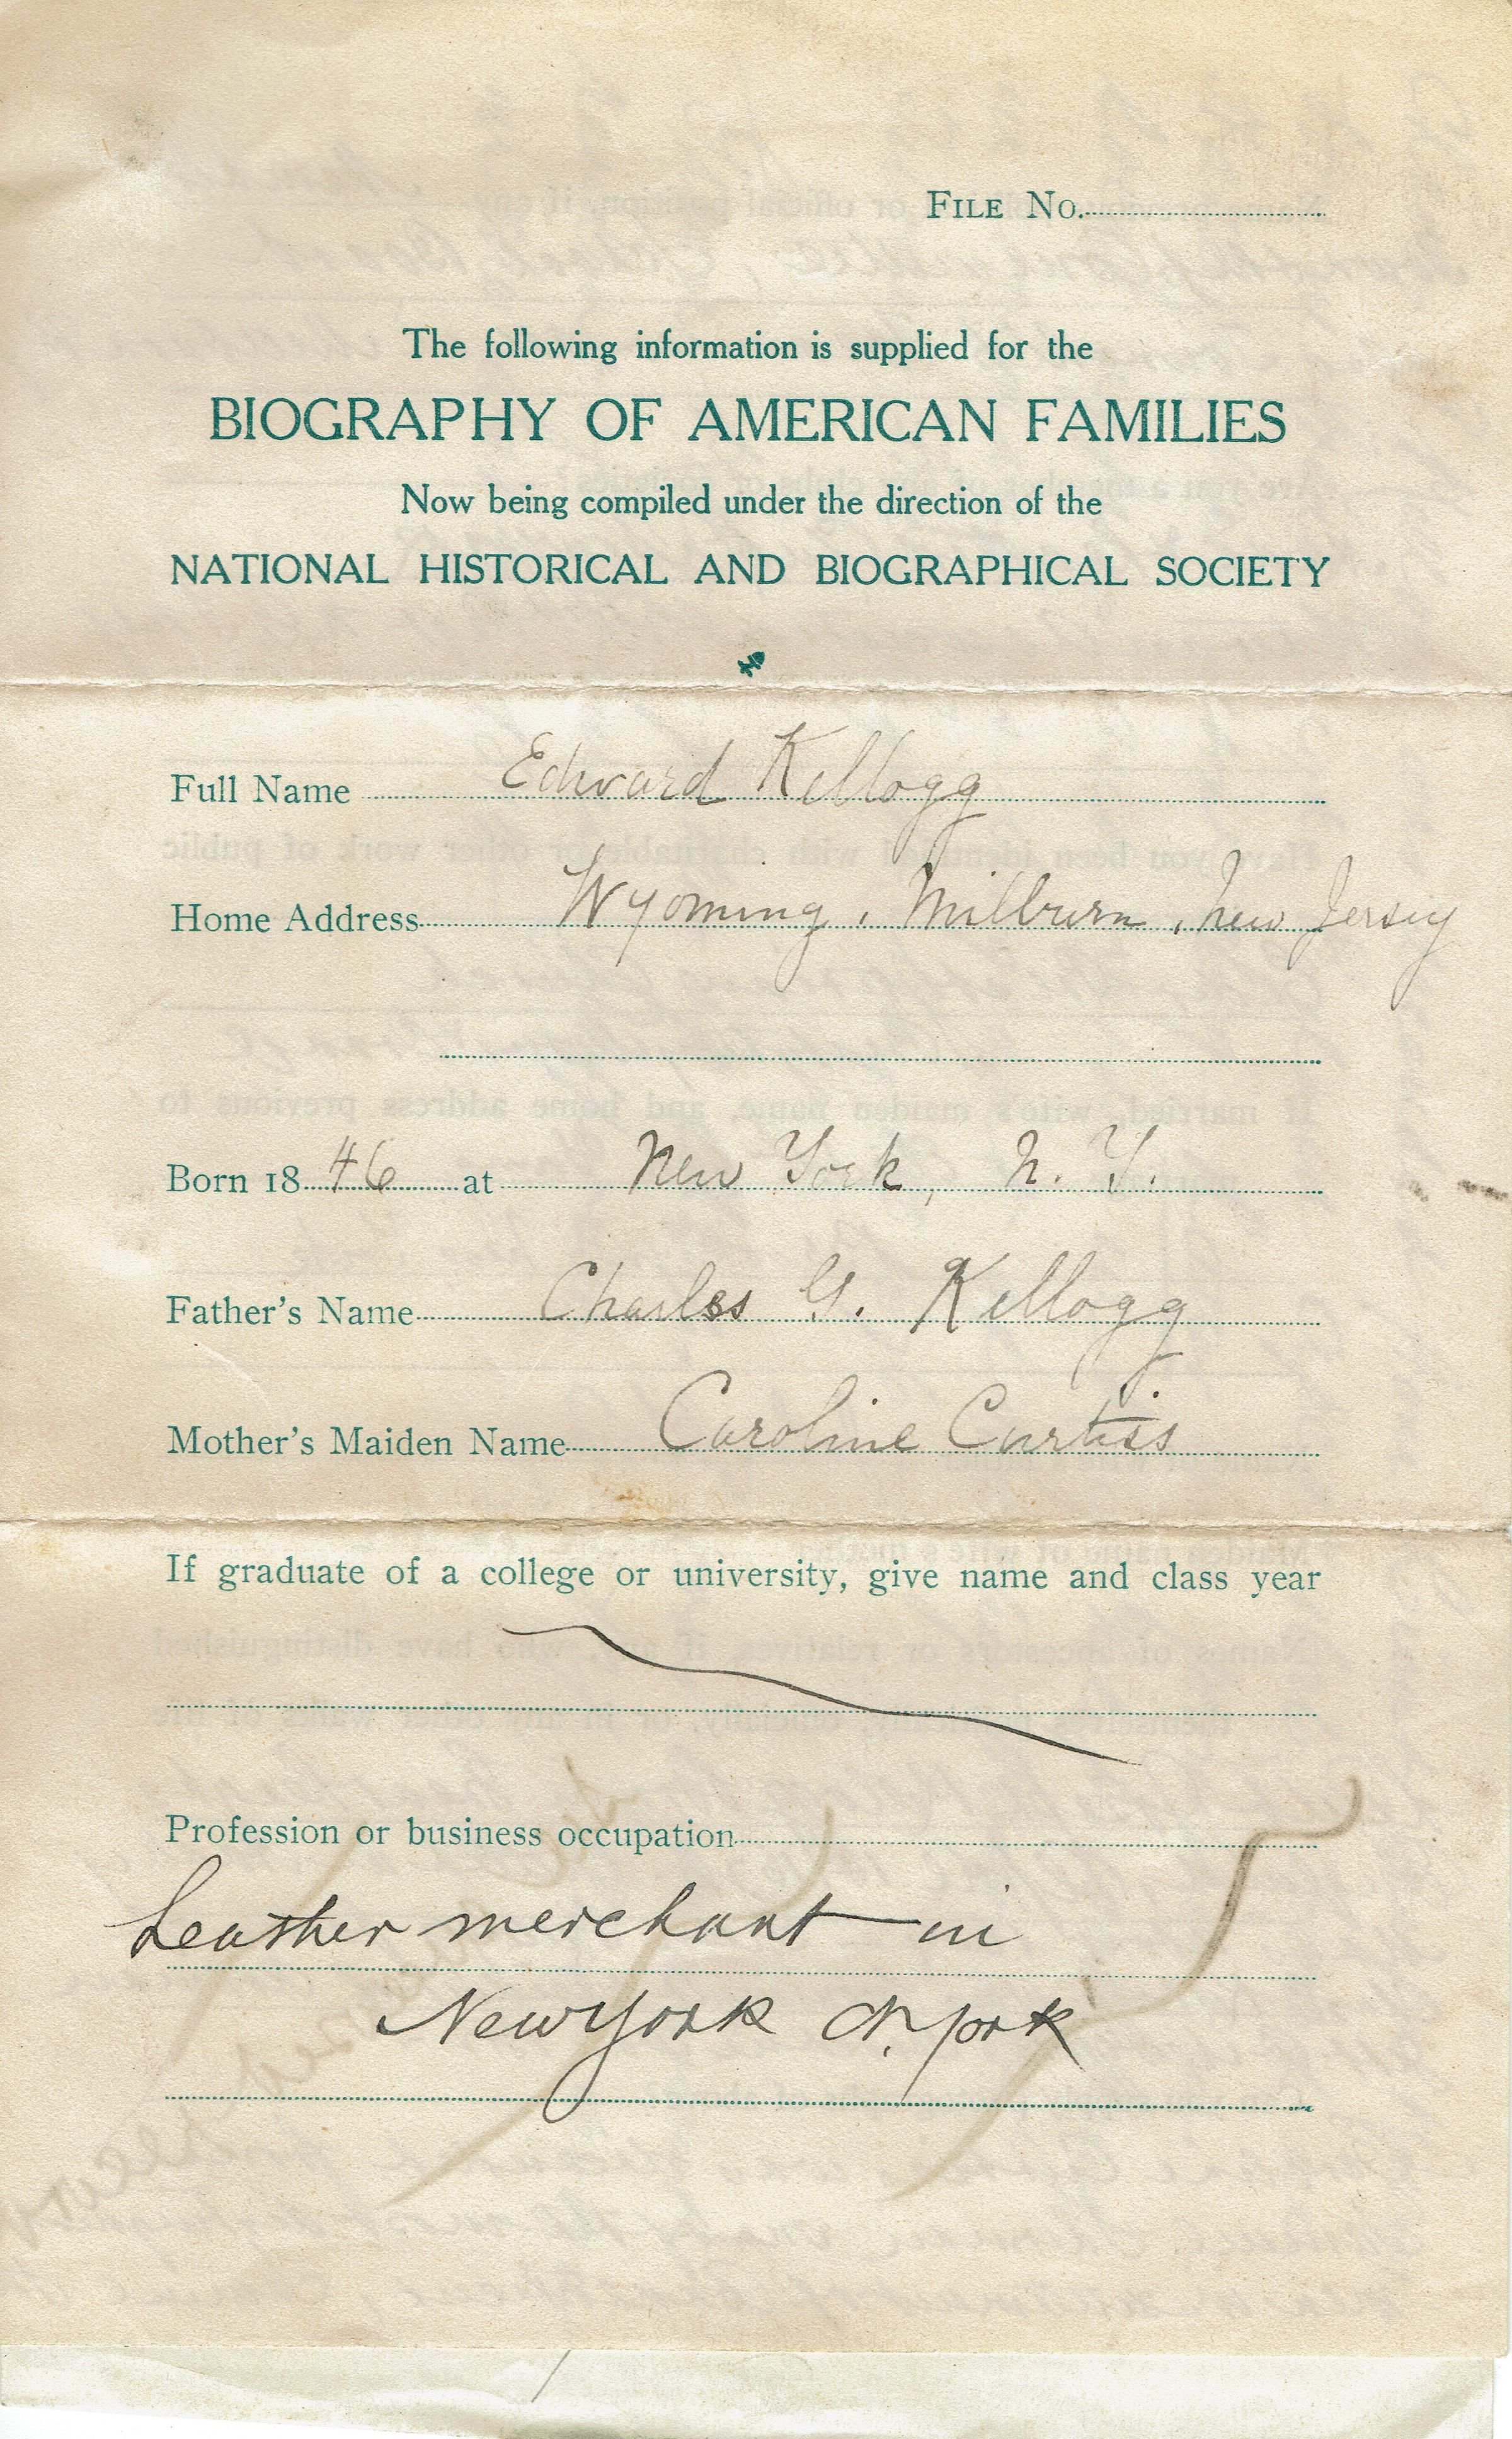 FILE No.
The following information is supplied for the
BIOGRAPHY OF AMERICAN FAMILIES
Now being compiled under the direction of the
NATIONAL HISTORICAL AND BIOGRAPHICAL SOCIETY
Full Name Edward Kellogg
Home Address Wyoming, Milburn, New Jersey
Born 1846 at New York, N. Y.
Father's Name Charles G. Kellogg
Mother's Maiden Name Caroline Curtiss
If graduate of a college or university, give name and class year
Profession or business occupation
Leather merchant in
New York N. York